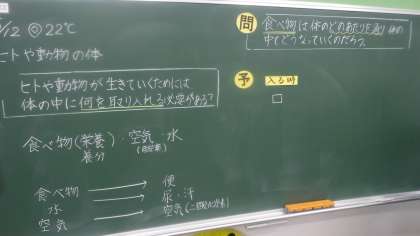 /2 ◎ 22℃
ヒトや動物の体
ヒトや動物が生きていくためには
体の中に何を取り入れる必要があるか?
食べ物(栄養)・空気・水
養分
食べ物 → 便
水 → 尿・汗
空気 → 空気(二酸化炭素)
問
食べ物は体のどのあたりを通り体の
中でどうなっていくのだろう。
予
入る時